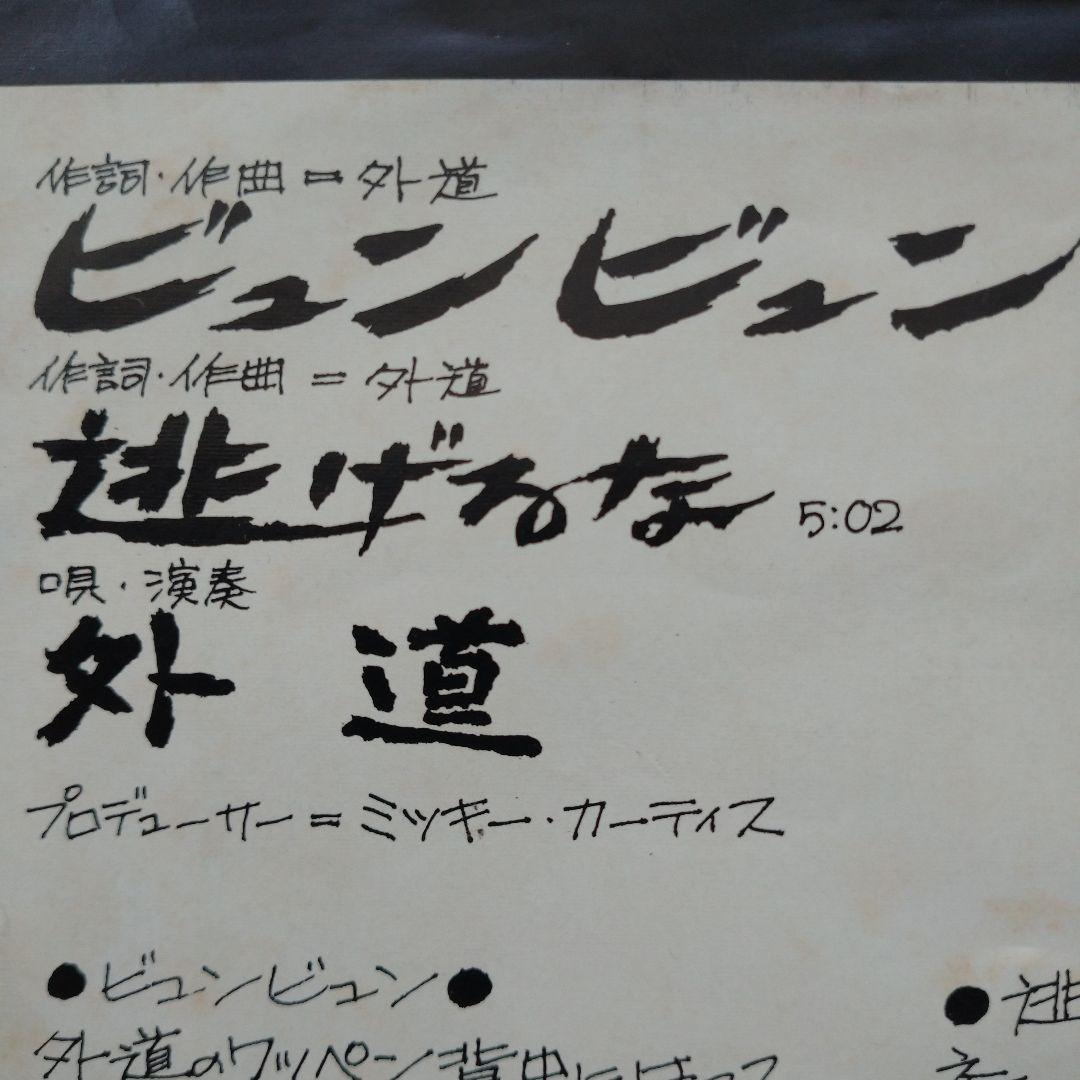 作詞・作曲=外道
ビュンビュン
作詞・作曲=外道
逃げるな 5:02
唄・演奏
外道
プロデューサー=ミッキー・カーティス
●ビュンビュン●
●逃
外道のワッペン背中にはって